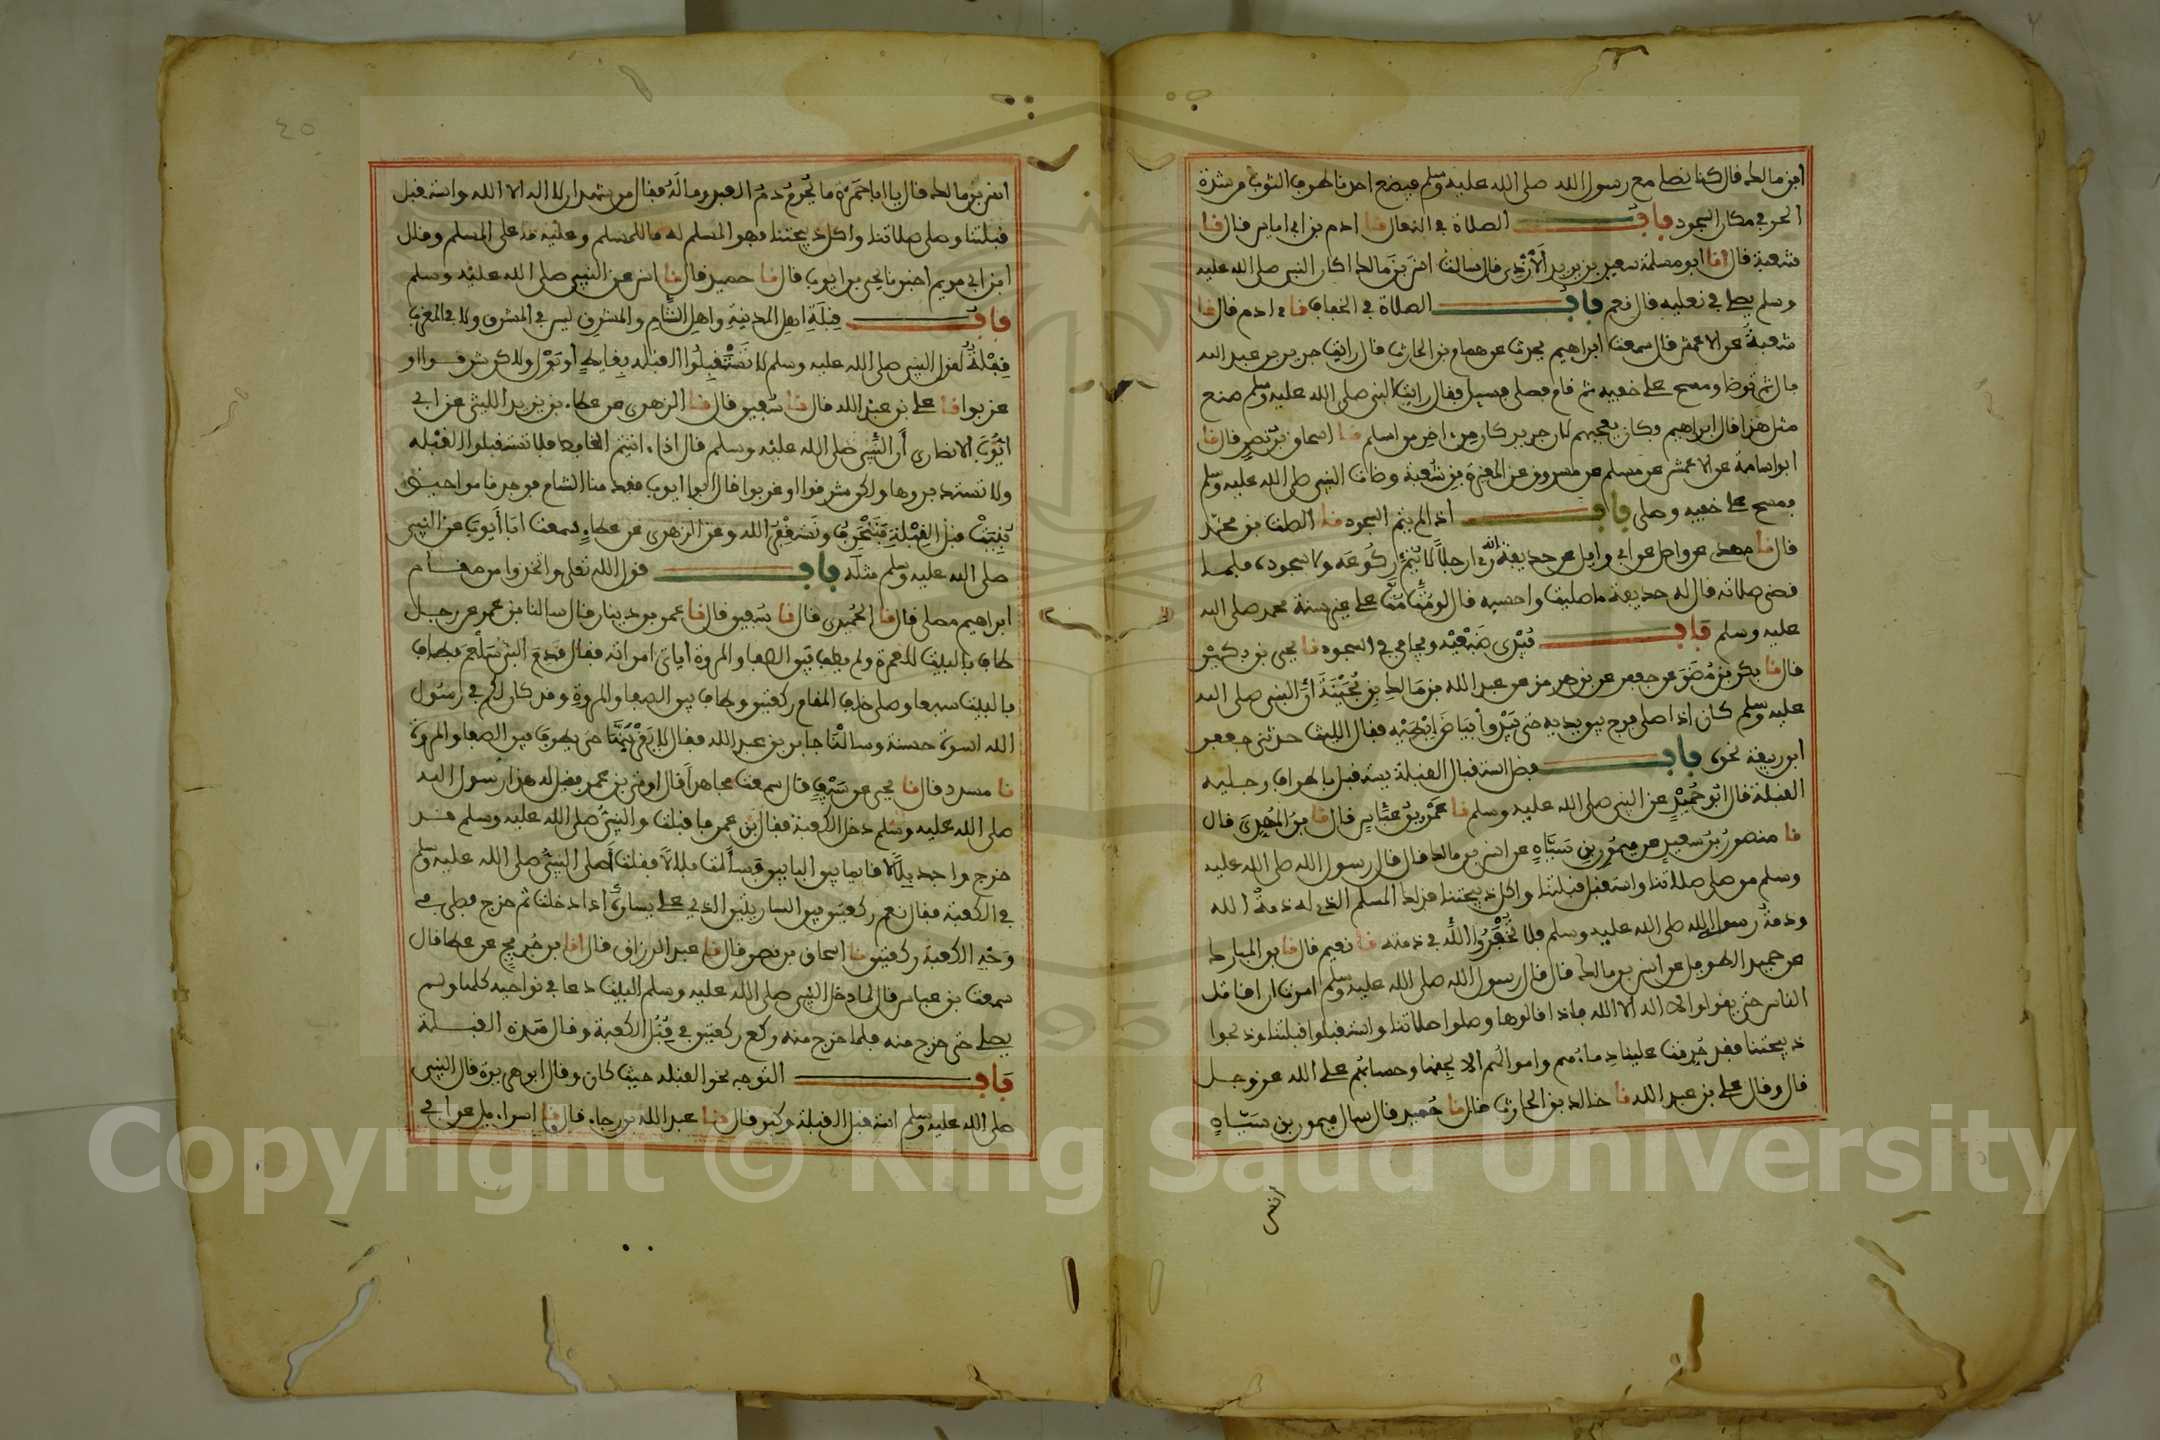 ابن مالك قال كنا نصلي مع رسول الله صلى الله عليه وسلم فيضع احدنا طرف الثوب من شدة
الحر في مكان السجود باب الصلاة في النعال نا ادم بن ابي اياس قال نا
شعبة قال انا ابو مسلمة سعيد بن يزيد الازدي قال سالت انس بن مالك اكان النبي صلى الله عليه
وسلم يصلي في نعليه قال نعم باب الصلاة في الخفاف نا ادم قال نا
شعبة عن الاعمش قال سمعت ابراهيم يحدث عن همام بن الحارث قال رايت جرير بن عبد الله
بال ثم توضا ومسح على خفيه ثم قام فصلى فسيل فقال رايت النبي صلى الله عليه وسلم صنع
مثل هذا قال ابراهيم وكان يعجبهم لان جرير كان من اخر من اسلم نا اسحاق بن نصر قال نا
ابو اسامة عن الاعمش عن مسلم عن مسروق عن المغيرة بن شعبة وضات النبي صلى الله عليه وسلم
فمسح على خفيه وصلى باب اذا لم يتم السجود نا الصلت بن محمد
قال نا مهدي عن واصل عن ابي وايل عن حذيفة راى رجلا لا يتم ركوعه ولا سجوده فلما
قضى صلاته قال له حذيفة ما صليت واحسبه قال لو مت مت على غير سنة محمد صلى الله
عليه وسلم باب يبدي ضبعيه ويجافي في السجود نا يحيى بن بكير
قال نا بكر بن مضر عن جعفر عن بن هرمز عن عبد الله بن مالك بن بحينة ان النبي صلى الله
عليه وسلم كان اذا صلى فرج بين يديه حتى يبدوا بياض ابطيه فقال الليث حدثني جعفر
ابن ربيعة نحوه باب فضل استقبال القبلة يستقبل باطراف رجليه
القبلة قال ابو حميد عن النبي صلى الله عليه وسلم نا عمرو بن عباس قال نا بن المهدي قال
نا منصور بن سعيد عن ميمون بن سياه عن انس بن مالك قال قال رسول الله صلى الله عليه
وسلم من صلى صلاتنا واستقبل قبلتنا واكل ذبيحتنا فذلك المسلم الذي له ذمة الله
وذمة رسول الله صلى الله عليه وسلم فلا تخفروا الله في ذمته نا نعيم قال نا بن المبارك
عن حميد الطويل عن انس بن مالك قال قال رسول الله صلى الله عليه وسلم امرت ان اقاتل
الناس حتى يقولوا لا اله الا الله فاذا قالوها وصلوا صلاتنا واستقبلوا قبلتنا وذبحوا
ذبيحتنا فقد حرمت علينا دماؤهم واموالهم الا بحقها وحسابهم على الله عز وجل
قال وقال علي بن عبد الله نا خالد بن الحارث قال نا حميد قال سال ميمون بن سياه
انس
٤٥
انس بن مالك قال يا ابا حمزة ما يحرم دم العبد وماله فقال من شهد ان لا اله الا الله واستقبل
قبلتنا وصلى صلاتنا واكل ذبيحتنا فهو المسلم له ما للمسلم وعليه ما على المسلم وقال
ابن ابي مريم اخبرنا يحيى بن ايوب قال نا حميد قال نا انس عن النبي صلى الله عليه وسلم
باب قبلة اهل المدينة واهل الشام والمشرق ليس في المشرق ولا في المغرب
قبلة لقول النبي صلى الله عليه وسلم لا تستقبلوا القبلة بغايط او بول ولاكن شرقوا او
غربوا نا علي بن عبد الله قال نا سفين قال نا الزهري عن عطاء بن يزيد الليثي عن ابي
ايوب الانصاري ان النبي صلى الله عليه وسلم قال اذا اتيتم الغايط فلا تستقبلوا القبلة
ولا تستدبروها ولكن شرقوا او غربوا قال ابو ايوب فقدمنا الشام فوجدنا مراحيض
بنيت قبل القبلة فننحرف ونستغفر الله وعن الزهري عن عطاء سمعت ابا ايوب عن النبي
صلى الله عليه وسلم مثله باب قول الله تعلى واتخذوا من مقام
ابراهيم مصلى قال نا الحميدي قال نا سفين قال نا عمرو بن دينار قال سالنا بن عمر عن رجل
طاف بالبيت للعمرة ولم يطف بين الصفا والمروة اياتي امراته فقال قدم النبي صلعم فطاف
بالبيت سبعا وصلى خلف المقام ركعتين وطاف بين الصفا والمروة وقد كان لكم في رسول
الله اسوة حسنة وسالنا جابر بن عبد الله فقال لا يقربنها حتى يطوف بين الصفا والمروة
نا مسدد قال نا يحيى عن سيف قال سمعت مجاهدا قال اوتي بن عمر فقيل له هذا رسول الله
صلى الله عليه وسلم دخل الكعبة فقال بن عمر فاقبلت والنبي صلى الله عليه وسلم قد
خرج واجد بلالا قايما بين البابين فسالت بلالا فقلت اصلى النبي صلى الله عليه وسلم
في الكعبة فقال نعم ركعتين بين الساريتين التي على يساره اذا دخلت ثم خرج فصلى في
وجه الكعبة ركعتين نا اسحاق بن نصر قال نا عبد الرزاق قال انا بن جريج عن عطا قال
سمعت بن عباس قال لما دخل النبي صلى الله عليه وسلم البيت دعا في نواحيه كلها ولم
يصلي حتى خرج منه فلما خرج منه ركع ركعتين في قبل الكعبة وقال هذه القبلة
باب التوجه نحو القبلة حيث كان وقال ابو هريرة قال النبي
صلى الله عليه وسلم استقبل القبلة وكبر قال نا عبد الله بن رجاء قال نا اسراءيل عن ابي
Copyright © King Saud University
1957